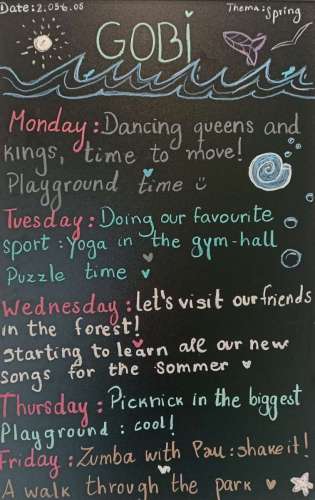 Date: 2.05-6.05
Thema: Spring
GOBi
Monday: Dancing queens and
kings, time to move!
Playground time
Tuesday: Doing our favourite
sport: yoga in the gym-hall
Puzzle time
Wednesday: let's visit our friends
in the forest!
Starting to learn all our new
songs for the sommer
Thursday: Picknick in the biggest
Playground: cool!
Friday: Zumba with Pau: shake it!
A walk through the park